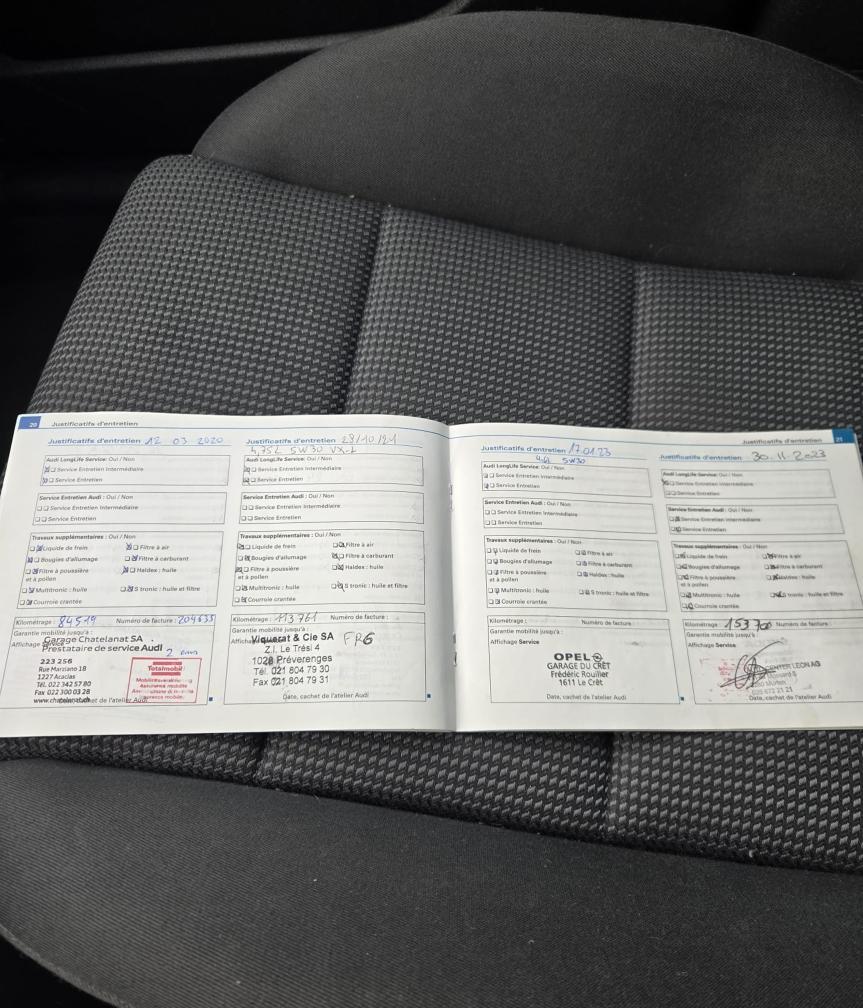 20 Justificatifs d'entretien
Justificatifs d'entretien 12 03 2020
Audi LongLife Service: Oui / Non
Service Entretien Intermédiaire
Service Entretien
Service Entretien Audi : Oui / Non
Service Entretien Intermédiaire
Service Entretien
Travaux supplémentaires : Oui / Non
Liquide de frein Filtre à air
Bougies d'allumage Filtre à carburant
Filtre à poussière et à pollen Haldex : huile
Multitronic : huile S tronic : huile et filtre
Courroie crantée
Kilométrage : 84519 Numéro de facture : 204635
Garantie mobilité jusqu'à :
Affichage Service
Garage Chatelanat SA
Prestataire de service Audi
223 256
Rue Marziano 18
1227 Acacias
Tél. 022 342 57 80
Fax 022 300 03 28
www.chatelanat.ch
Totalmobil
Date, cachet de l'atelier Audi
Justificatifs d'entretien 28/10/21
4,75L 5W30
Audi LongLife Service: Oui / Non
Service Entretien Intermédiaire
Service Entretien
Service Entretien Audi : Oui / Non
Service Entretien Intermédiaire
Service Entretien
Travaux supplémentaires : Oui / Non
Liquide de frein Filtre à air
Bougies d'allumage Filtre à carburant
Filtre à poussière et à pollen Haldex : huile
Multitronic : huile S tronic : huile et filtre
Courroie crantée
Kilométrage : 113761 Numéro de facture :
Garantie mobilité jusqu'à :
Viquerat & Cie SA
Z.I. Le Trési 4
1028 Préverenges
Tél. 021 804 79 30
Fax 021 804 79 31
Date, cachet de l'atelier Audi
Justificatifs d'entretien 21
Justificatifs d'entretien 17.01.23
5W30
Audi LongLife Service: Oui / Non
Service Entretien Intermédiaire
Service Entretien
Service Entretien Audi : Oui / Non
Service Entretien Intermédiaire
Service Entretien
Travaux supplémentaires : Oui / Non
Liquide de frein Filtre à air
Bougies d'allumage Filtre à carburant
Filtre à poussière et à pollen Haldex : huile
Multitronic : huile S tronic : huile et filtre
Courroie crantée
Kilométrage : Numéro de facture :
Garantie mobilité jusqu'à :
Affichage Service
OPEL
GARAGE DU CRÊT
Frédéric Rouiller
1611 Le Crêt
Date, cachet de l'atelier Audi
Justificatifs d'entretien 30.11.2023
Audi LongLife Service: Oui / Non
Service Entretien Intermédiaire
Service Entretien
Service Entretien Audi : Oui / Non
Service Entretien Intermédiaire
Service Entretien
Travaux supplémentaires : Oui / Non
Liquide de frein Filtre à air
Bougies d'allumage Filtre à carburant
Filtre à poussière et à pollen Haldex : huile
Multitronic : huile S tronic : huile et filtre
Courroie crantée
Kilométrage : Numéro de facture :
Garantie mobilité jusqu'à :
Affichage Service
LEON AG
Date, cachet de l'atelier Audi